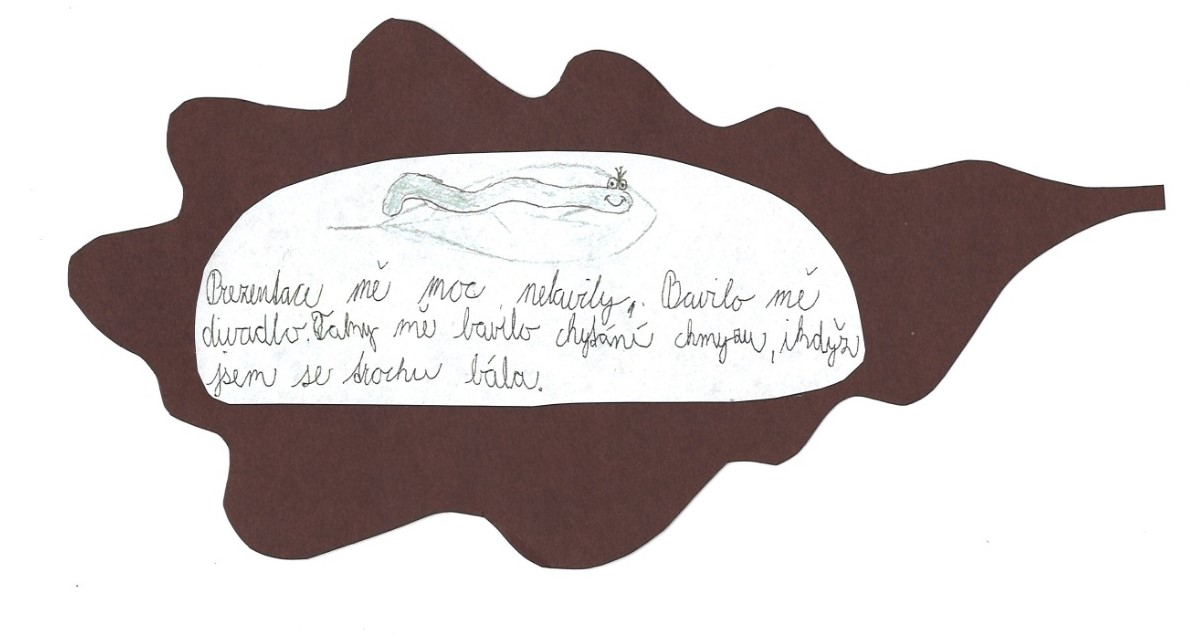 Prezentace mě moc nebavily. Bavilo mě
divadlo. mě bavilo chytání chmyzu, ikdyž
jsem se trochu bála.